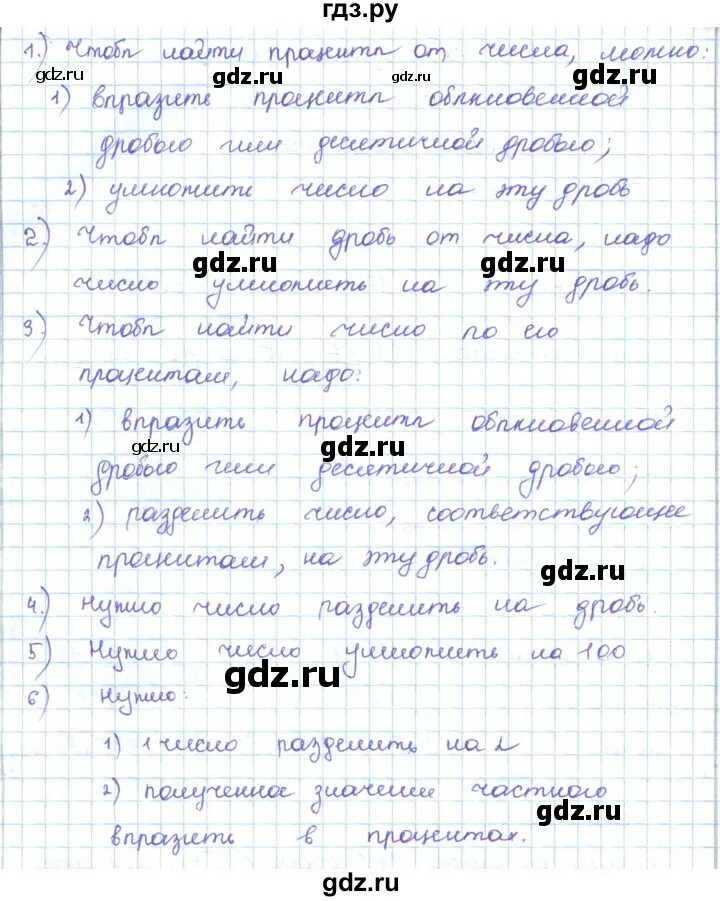 гдз.ру
1.) Чтобы найти проценты от числа, можно:
gdz.ru gdz.ru gdz.ru
1) выразить проценты обыкновенной
дробью или десятичной дробью;
2) умножить число на эту дробь
2.) Чтобы найти дробь от числа, надо
gdz.ru gdz.ru
число умножить на эту дробь.
3.) Чтобы найти число по его
процентам, надо:
1) выразить проценты обыкновенной
gdz.ru gdz.ru
дробью или десятичной дробью;
2) разделить число, соответствующее
процентам, на эту дробь.
gdz.ru
4.) Нужно число разделить на дробь.
5) Нужно число умножить на 100
gdz.ru
6) Нужно:
1) 1 число разделить на 2
2) полученное значение частного
gdz.ru
выразить в процентах.
gdz.ru